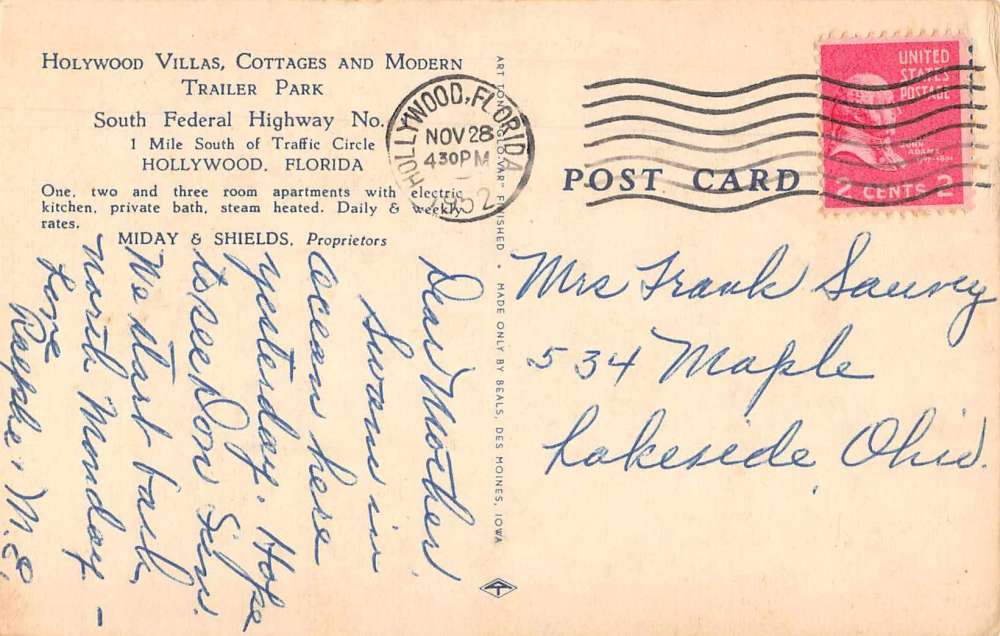 HOLYWOOD VILLAS, COTTAGES AND MODERN
TRAILER PARK
South Federal Highway No.
1 Mile South of Traffic Circle
HOLLYWOOD, FLORIDA
One, two and three room apartments with electric
kitchen, private bath, steam heated. Daily & weekly
rates.
MIDAY & SHIELDS, Proprietors
HOLLYWOOD, FLORIDA
NOV 28
430PM
1952
UNITED
STATES
POSTAGE
JOHN
ADAMS
2 CENTS 2
POST CARD
ART TONE "GLO-VAR" FINISHED • MADE ONLY BY BEALS, DES MOINES, IOWA
Dear Mother,
Swam in
ocean here
yesterday. Hope
to see Don Sun.
We start back
north Monday –
Love
Ralph & M.E.
Mrs Frank
534 Maple
Lakeside, Ohio.